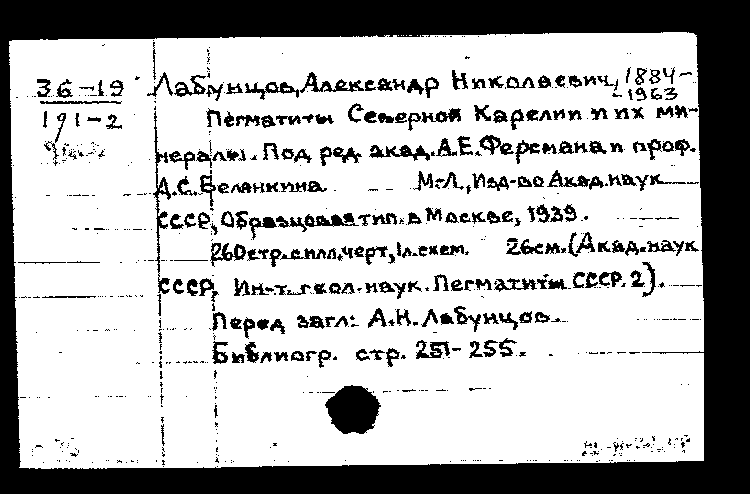 36-19 Лабунцов, Александр Николаевич, 1884-
-1963
191-2 Пегматиты Северной Карелии и их ми-
нералы. Под ред. акад. А.Е. Ферсмана и проф.
Д.С. Белянкина. М.-Л., Изд-во Акад. наук
СССР, Образцовая тип. в Москве, 1939.
260 стр. с илл. черт, 1 л. схем. 26 см. (Акад. наук
СССР. Ин-т геол. наук. Пегматиты СССР. 2).
Перед загл: А.Н. Лабунцов.
Библиогр. стр. 251-255.